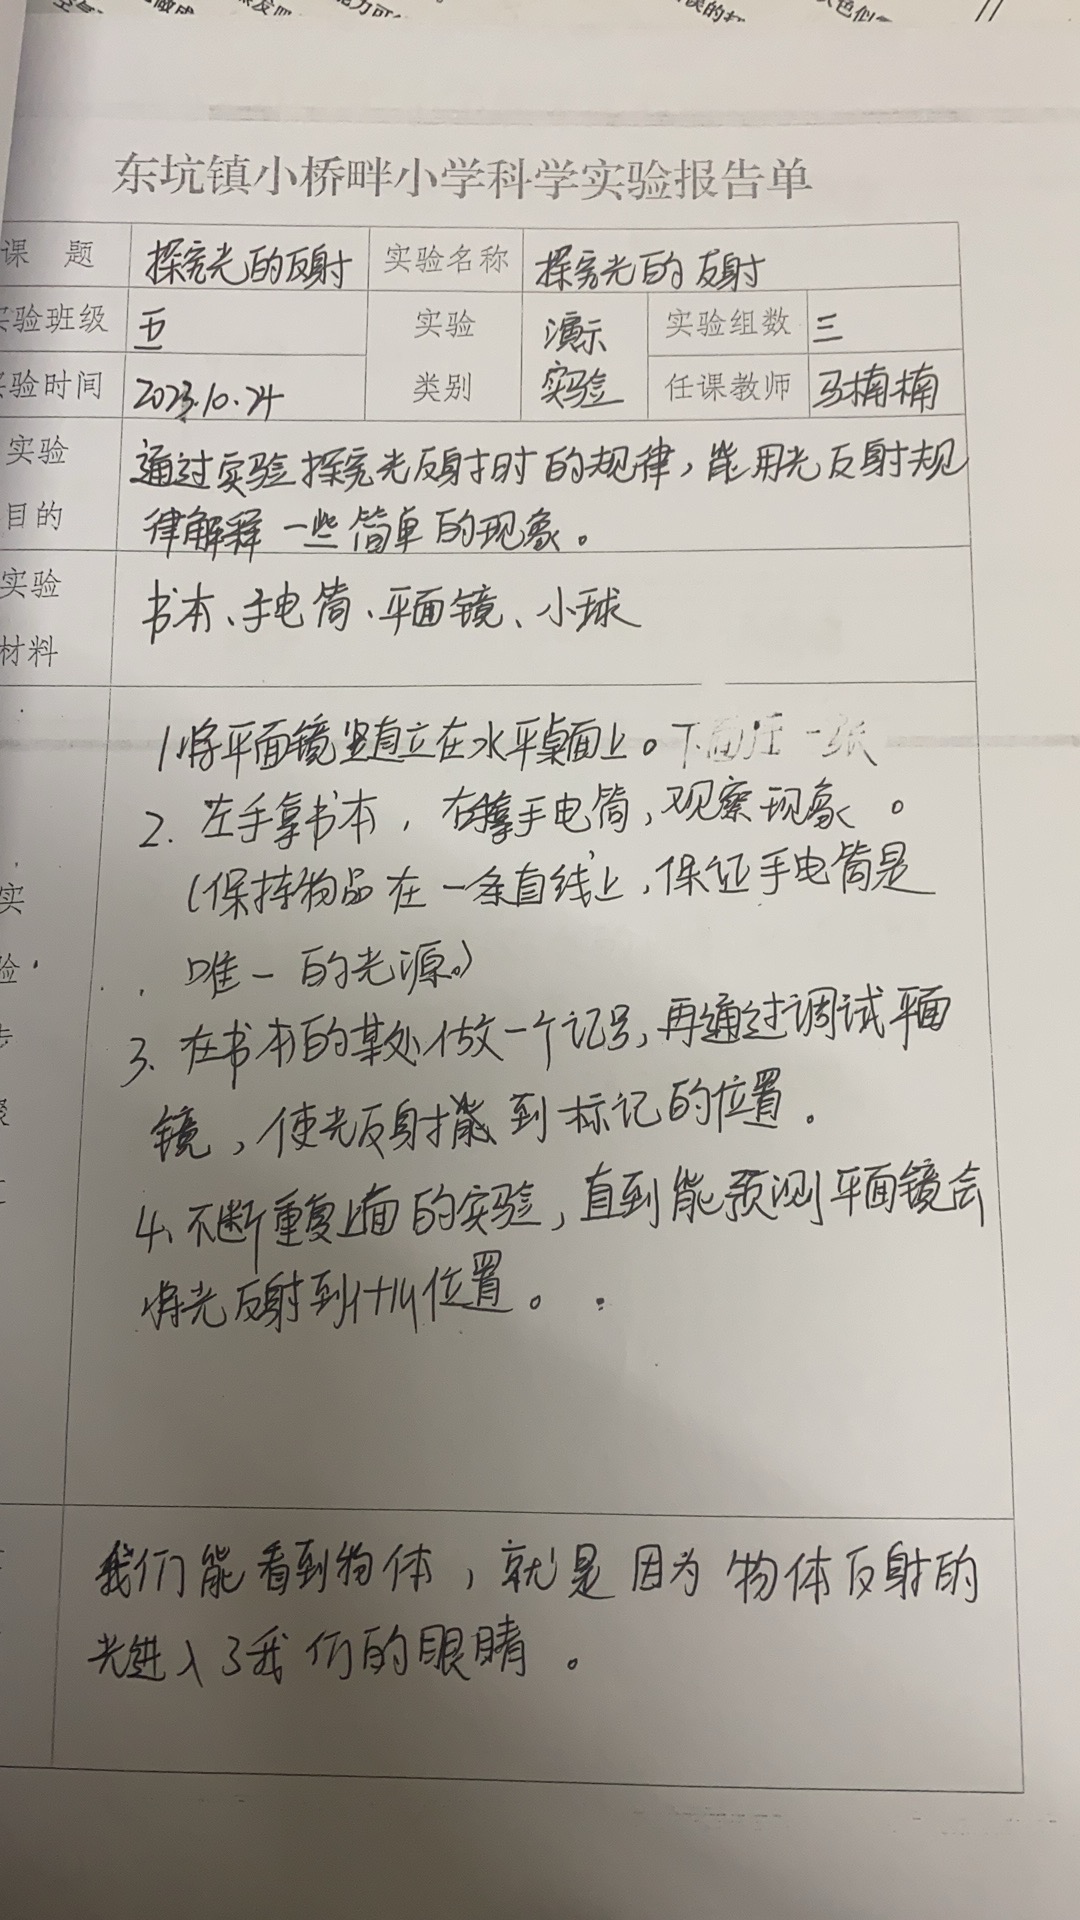 东坑镇小桥畔小学科学实验报告单
课 题 探究光的反射 实验名称 探究光的反射
实验班级 五 实验 演示 实验组数 三
实验时间 2023.10.24 类别 实验 任课教师 马楠楠
实验 通过实验探究光反射时的规律，能用光反射规
目的 律解释一些简单的现象。
实验 书本、手电筒、平面镜、小球
材料
1.将平面镜竖直立在水平桌面上。下面压一纸
2. 左手拿书本，右手拿手电筒，观察现象。
（保持物品在一条直线上，保证手电筒是
唯一的光源。）
3. 在书本的某处做一个记号，再通过调试平面
镜，使光反射能到标记的位置。
4、不断重复上面的实验，直到能预测平面镜会
将光反射到什么位置。
实
验
我们能看到物体，就是因为物体反射的
光进入了我们的眼睛。